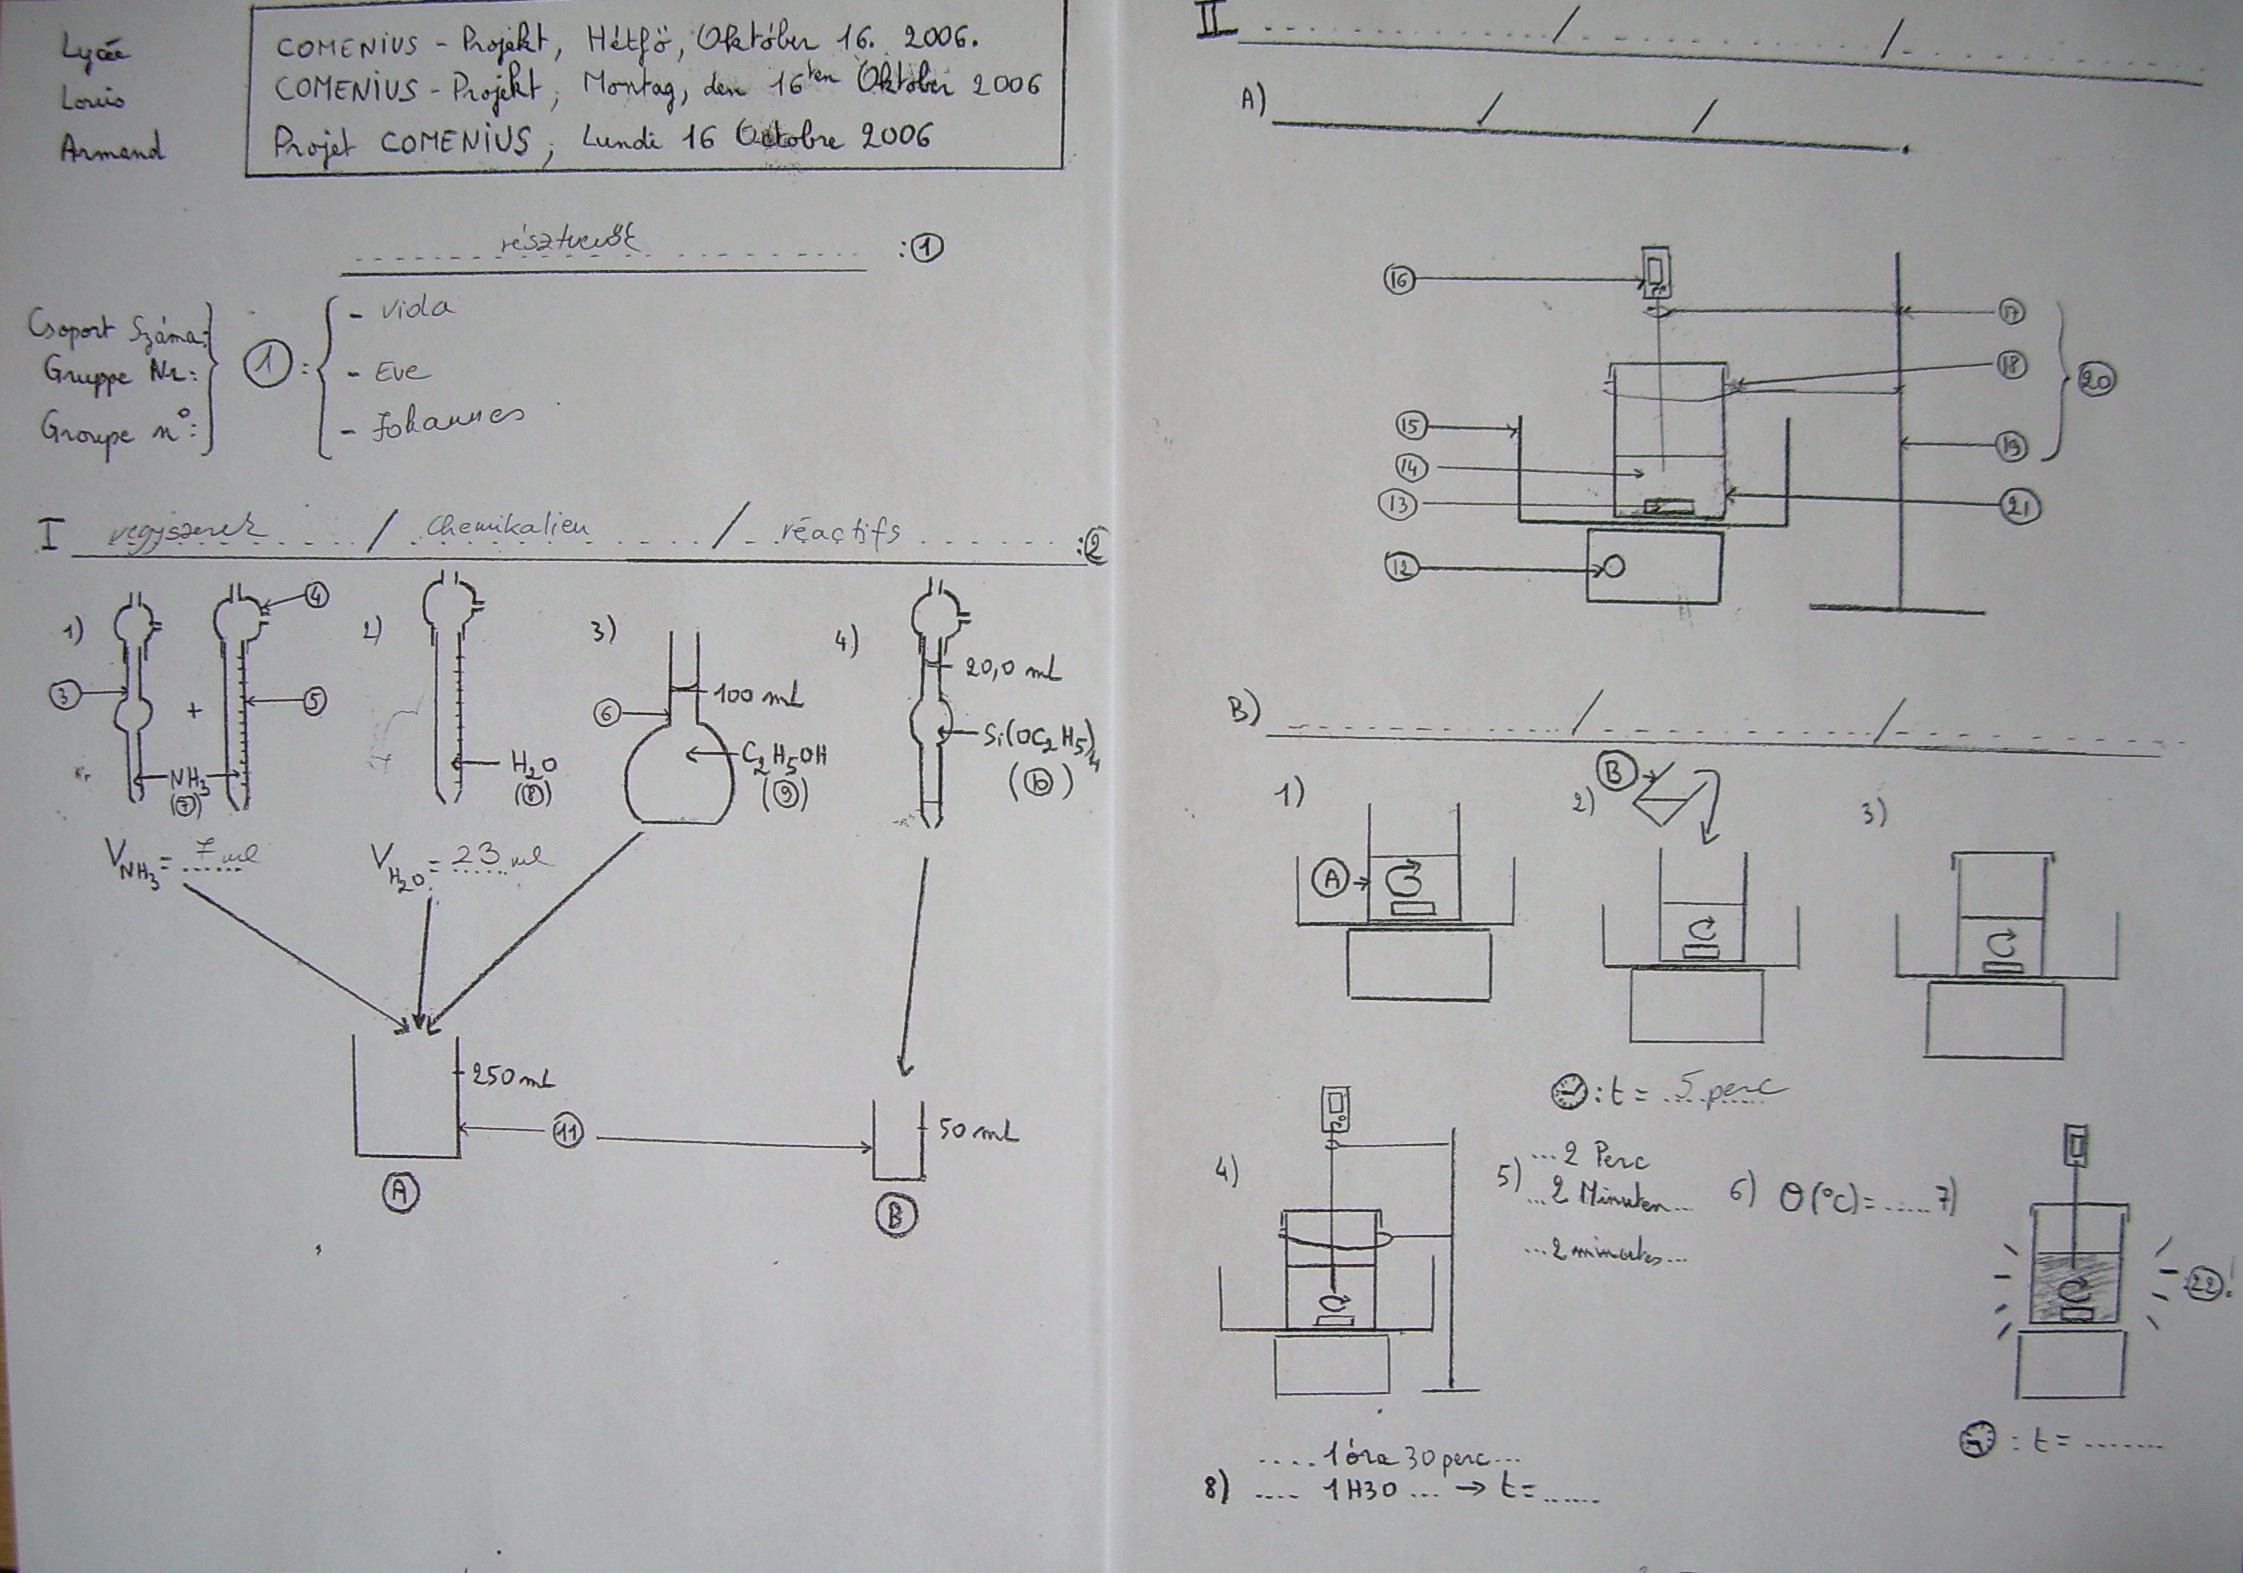 Lycée
Louis
Armand
COMENIUS - Projekt, Hétfő, Október 16. 2006.
COMENIUS - Projekt, Montag, den 16ten Oktober 2006
Projet COMENIUS, Lundi 16 Octobre 2006
résztvevők :①
Csoport Száma:
Gruppe Nr:
Groupe n°:
① :
- Viola
- Eve
- Johannes
I vegyszerek / Chemikalien / réactifs :②
1) ③ + ④ ⑤
NH3
(⑦)
2) H2O
(⑧)
3) ⑥ 100 mL
C2H5OH
(⑨)
4) 20,0 mL
Si(OC2H5)4
(⑩)
VNH3 = 7 ml
VH2O = 23 ml
250 mL
⑪
50 mL
Ⓐ
Ⓑ
II ........ / ........ / ........
A) / /
⑯
⑰
⑱
⑳
⑮
⑲
⑭
⑬
㉑
⑫
B) ........ / ........ / ........
1) Ⓐ
2) Ⓑ
3)
: t = 5 perc
4)
5) ...2 Perc
...2 Minuten...
...2 minutes...
6) Θ(°C) = .....
7) ㉒!
: t = .......
8) .... 1 óra 30 perc...
.... 1H30 ... → t = ......